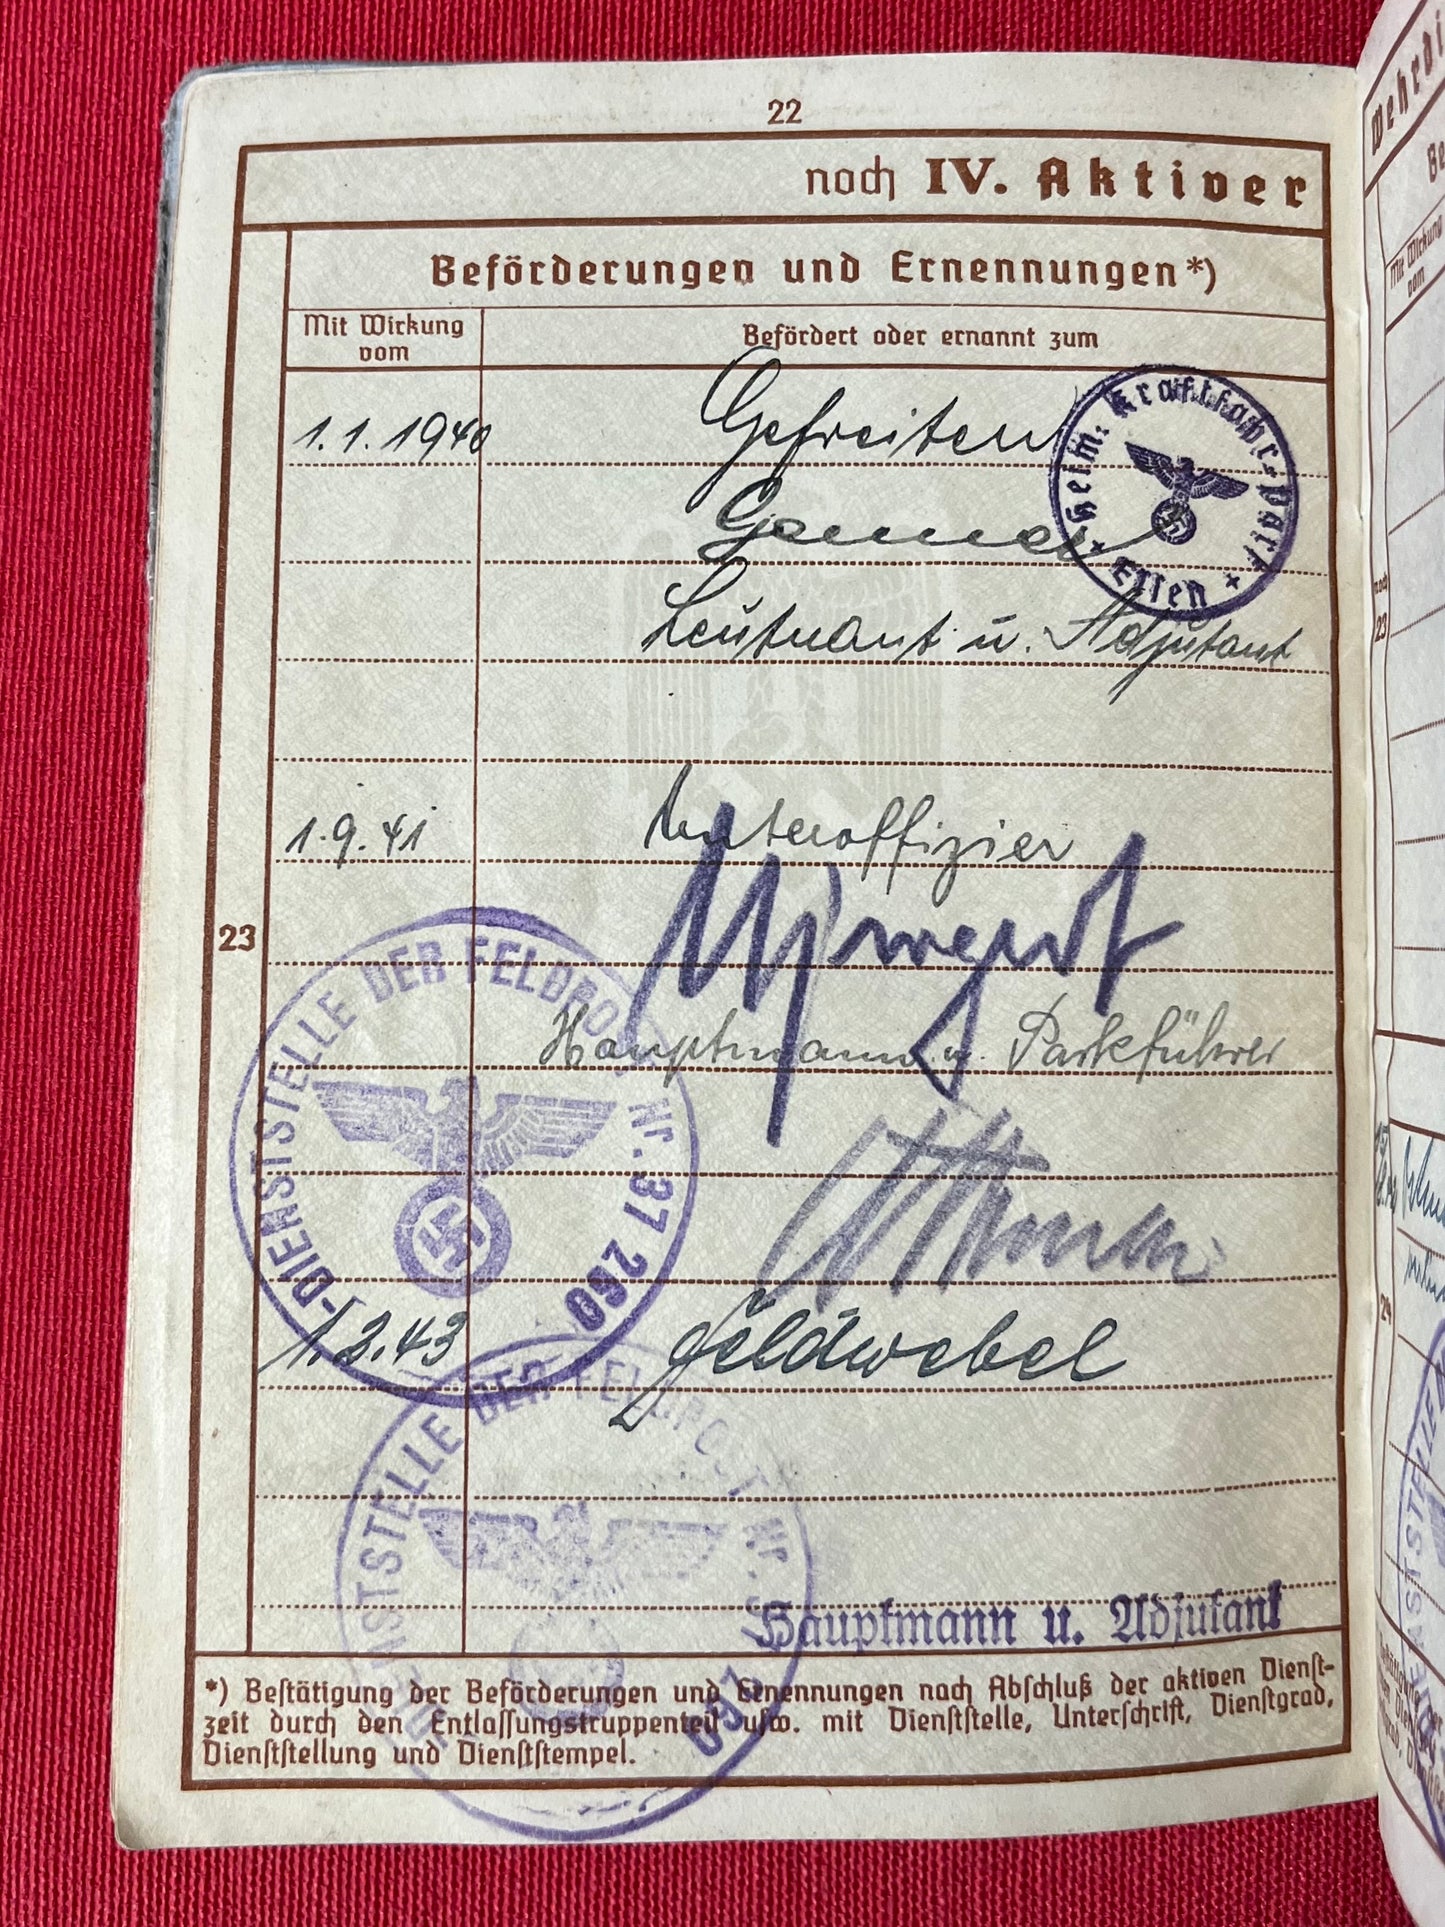 22
noch IV. Aktiver
Beförderungen und Ernennungen*)
Mit Wirkung
vom
Befördert oder ernannt zum
1.1.1940 Gefreiten
Heim. Kraftfahr-Park
Essen
Leutnant u. Adjutant
1.9.41 Unteroffizier
23
DIENSTSTELLE DER FELDPOST Nr. 37 260
Hauptmann u. Parkführer
1.3.43 Feldwebel
DIENSTSTELLE DER FELDPOST Nr.
Hauptmann u. Adjutant
*) Bestätigung der Beförderungen und Ernennungen nach Abschluß der aktiven Dienst-
zeit durch den Entlassungstruppenteil usw. mit Dienststelle, Unterschrift, Dienstgrad,
Dienststellung und Dienststempel.
Mit Wirkung
vom
noch
23
24